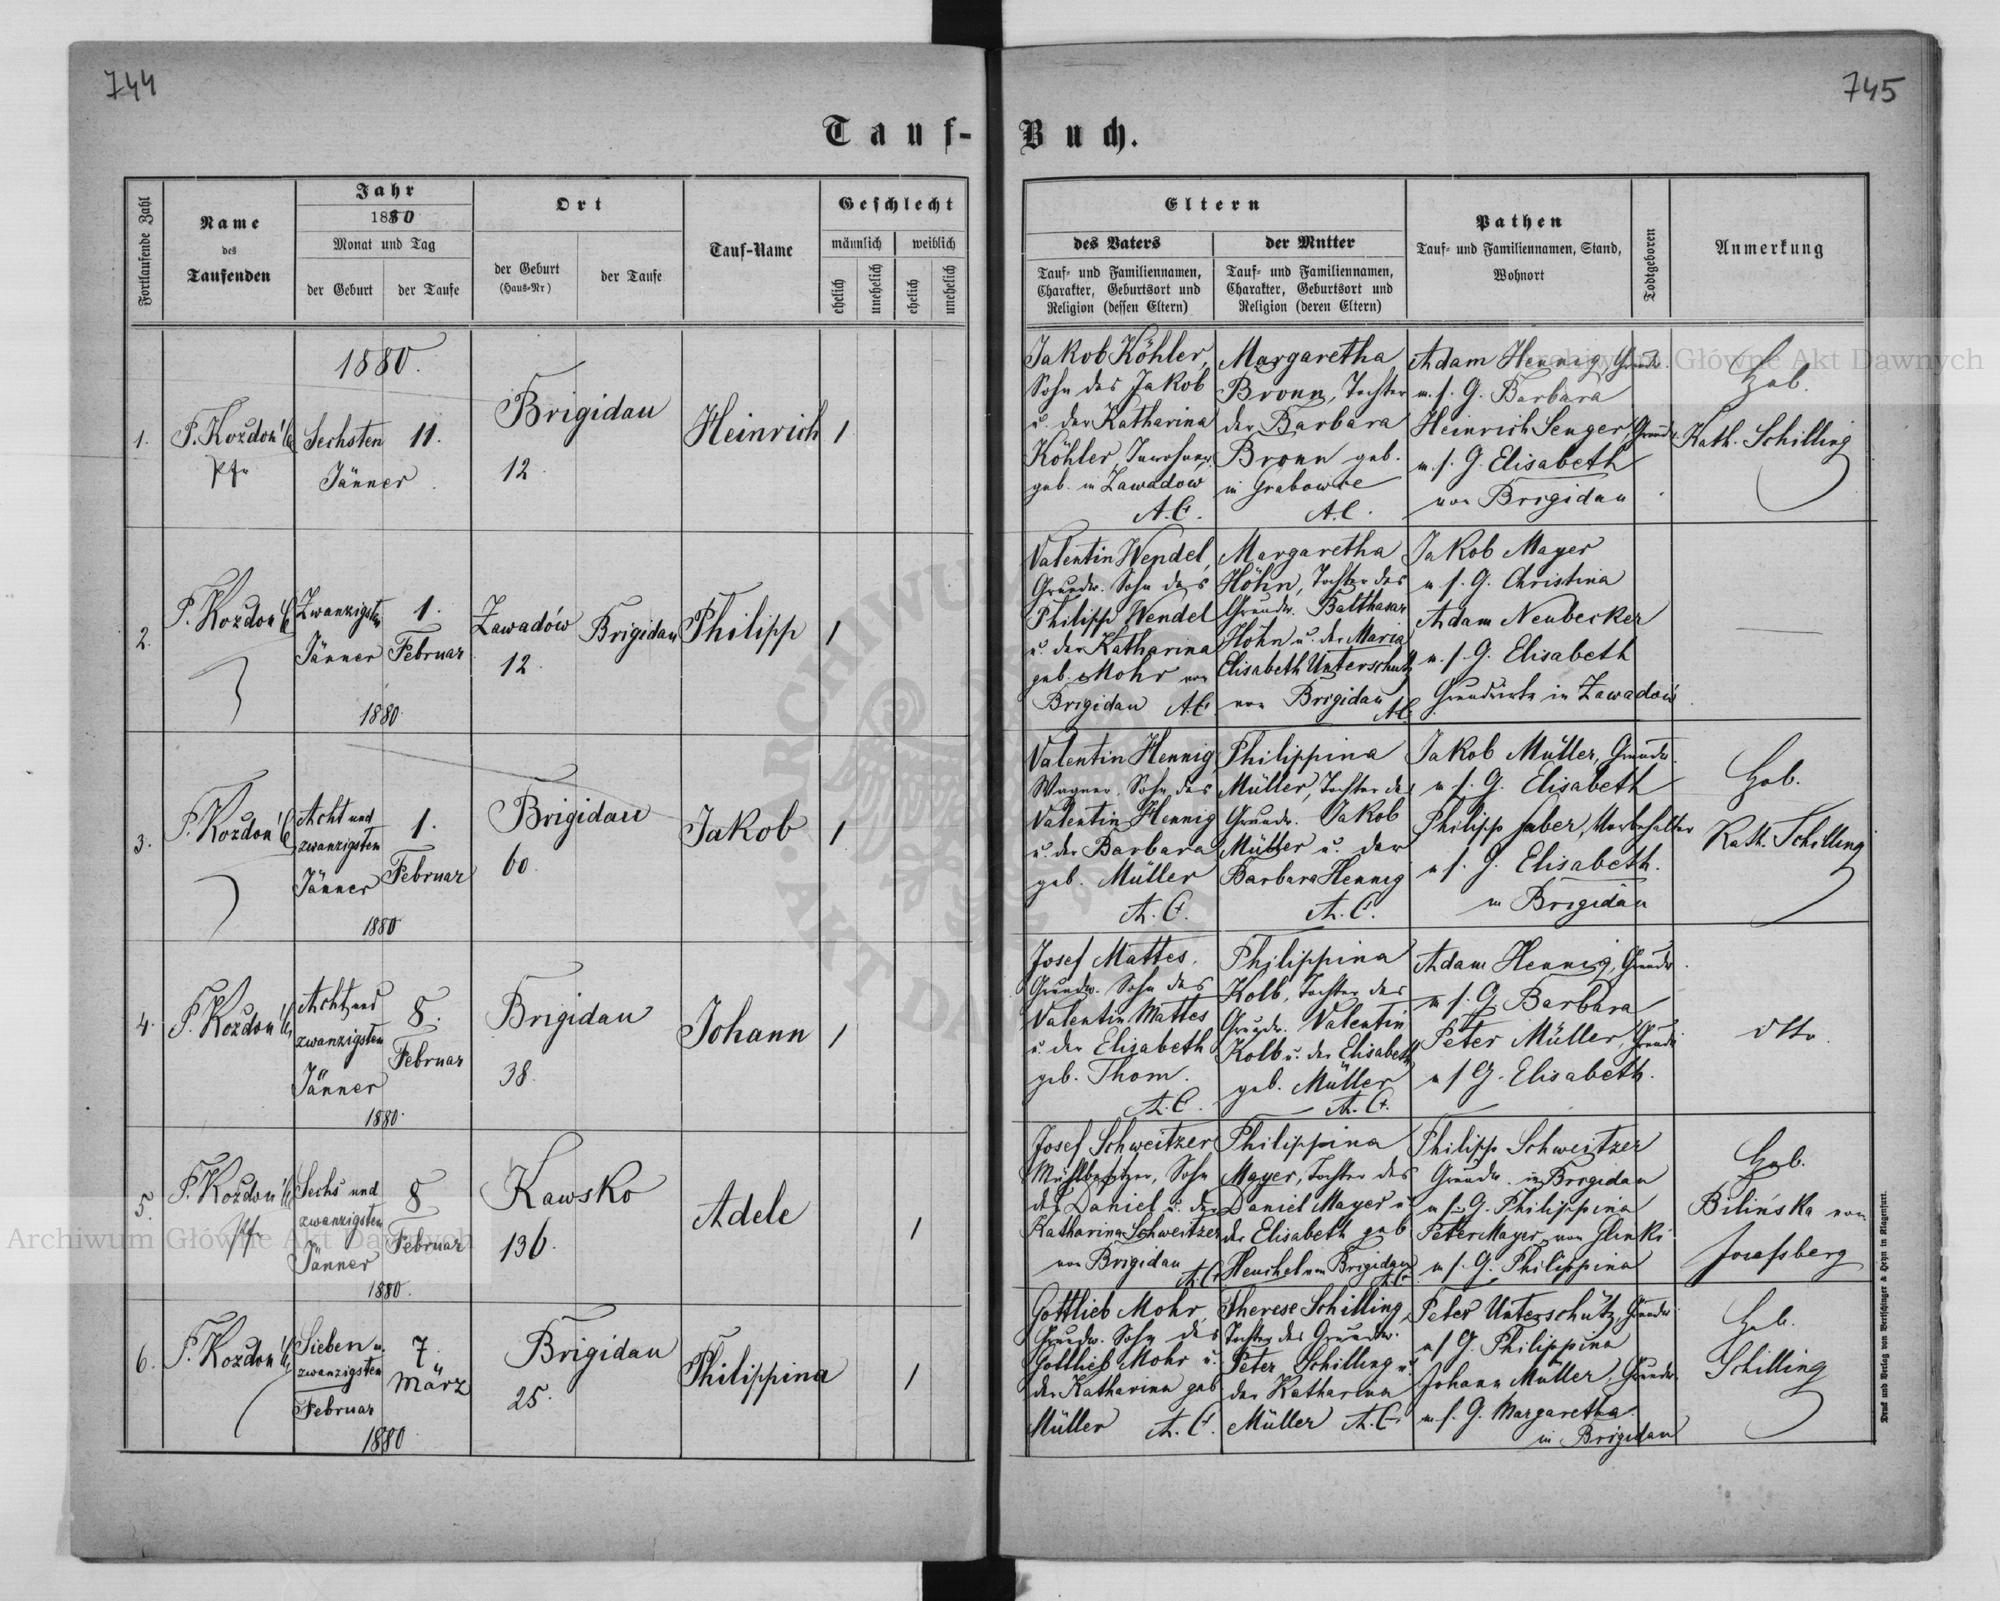 744
745
Tauf-Buch.
Fortlaufende Zahl
Name
des
Taufenden
Jahr
1880
Monat und Tag
der Geburt
der Taufe
Ort
der Geburt
(Haus-Nr)
der Taufe
Tauf-Name
Geschlecht
männlich
weiblich
ehelich
unehelich
ehelich
unehelich
Eltern
des Vaters
Tauf- und Familiennamen,
Charakter, Geburtsort und
Religion (dessen Eltern)
der Mutter
Tauf- und Familiennamen,
Charakter, Geburtsort und
Religion (deren Eltern)
Pathen
Tauf- und Familiennamen, Stand,
Wohnort
Todtgeboren
Anmerkung
1880.
1.
P. Kozdon
Pfr
Sechsten
Jänner
11.
Brigidau
12
Heinrich
1
Jakob Köhler,
Sohn des Jakob
u. der Katharina
Köhler
geb. in Zawadow
A.C.
Margaretha
Bronn, Tochter
der Barbara
Bronn geb.
in Grabowce
A.C.
Adam Hennig, Grundw.
u. s. G. Barbara
Heinrich Senger, Grundw.
u. s. G. Elisabeth
von Brigidau
Heb.
Kath. Schilling
2.
P. Kozdon
Zwanzigsten
Jänner
1880
1.
Februar
Zawadów
12
Brigidau
Philipp
1
Valentin Wendel,
Grundw. Sohn des
Philipp Wendel
u. der Katharina
geb. Mohr von
Brigidau A.C.
Margaretha
Höhn, Tochter des
Grundw. Balthasar
Höhn u. der Maria
Elisabeth Unterschütz
von Brigidau
A.C.
Jakob Mayer
u. s. G. Christina
Adam Neubecker
u. s. G. Elisabeth
Grundwirte in Zawadów
3.
P. Kozdon
Acht und
zwanzigsten
Jänner
1880
1.
Februar
Brigidau
60
Jakob
1
Valentin Hennig
Wagner, Sohn des
Valentin Hennig
u. der Barbara
geb. Müller
A.C.
Philippina
Müller, Tochter des
Grundw. Jakob
Müller u. der
Barbara Hennig
A.C.
Jakob Müller, Grundw.
u. s. G. Elisabeth
Philipp Faber,
u. s. G. Elisabeth.
in Brigidau
Heb.
Kath. Schilling
4.
P. Kozdon
Acht und
zwanzigsten
Jänner
1880.
8.
Februar
Brigidau
38.
Johann
1
Josef Mattes,
Grundw. Sohn des
Valentin Mattes
u. der Elisabeth
geb. Thom.
A.C.
Philippina
Kolb, Tochter des
Grundw. Valentin
Kolb u. der Elisabeth
geb. Müller
A.C.
Adam Hennig, Grundw.
u. s. G. Barbara
Peter Müller, Grundw.
u. s. G. Elisabeth.
dtto.
5.
P. Kozdon
Pfr
Sechs und
zwanzigsten
Jänner
1880.
8
Februar
Kawsko
136.
Adele
1
Josef Schweitzer
Mühlbesitzer, Sohn
des Daniel u. der
Katharina Schweitzer
von Brigidau
A.C.
Philippina
Mayer, Tochter des
Daniel Mayer u.
der Elisabeth geb
Henchel von Brigidau
A.C.
Philipp Schweitzer
Grundw. in Brigidau
u. s. G. Philippina
Peter Mayer von Glinki
u. s. G. Philippina
Heb.
Bilińska von
Josefsberg
6.
P. Kozdon
Sieben u.
zwanzigsten
Februar
1880
7.
März
Brigidau
25.
Philippina
1
Gottlieb Mohr,
Grundw. Sohn des
Gottlieb Mohr u.
der Katharina geb
Müller A.C.
Therese Schilling,
Tochter des Grundw.
Peter Schilling u.
der Katharina
Müller A.C.
Peter Unterschütz, Grundw.
u. s. G. Philippina
Johann Müller, Grundw.
u. s. G. Margaretha
in Brigidau
Heb.
Schilling
Druck und Verlag von Bertschinger & Heyn in Klagenfurt.
Archiwum Główne Akt Dawnych
Archiwum Główne Akt Dawnych